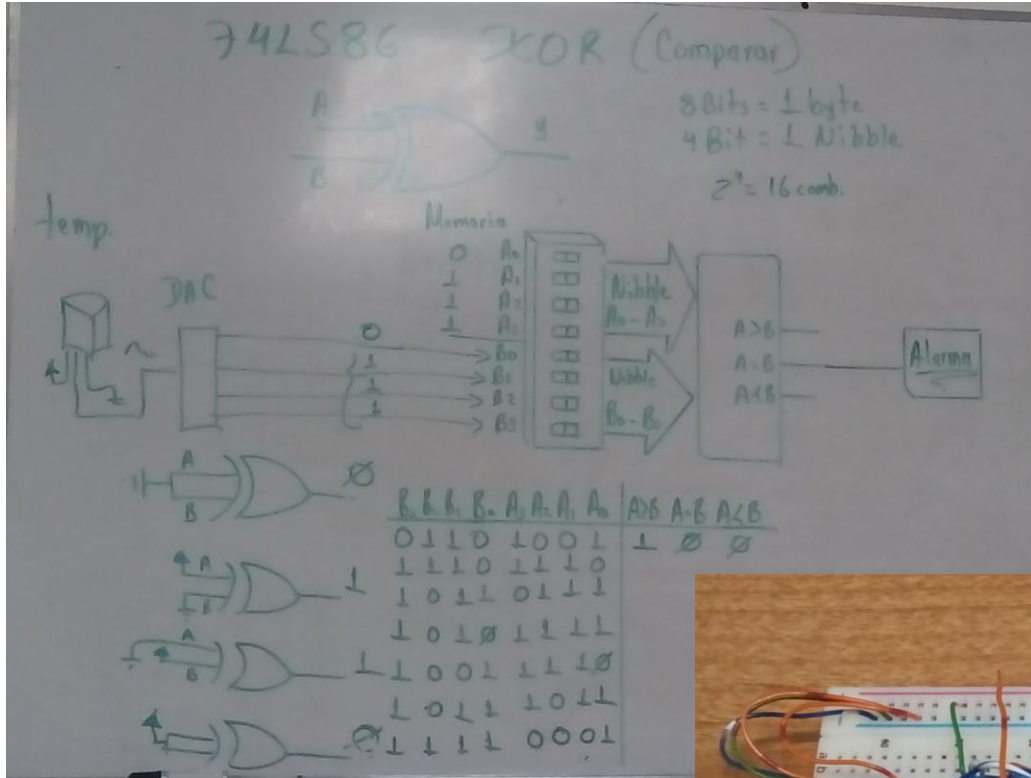 74LS86 XOR (Comparar)
A
B
y
8Bits = 1 byte
4 Bit = 1 Nibble
2⁴ = 16 comb.
temp.
DAC
Memoria
0 A₀
1 A₁
1 A₂
1 A₃
0 B₀
1 B₁
1 B₂
1 B₃
Nibble
A₀ - A₃
Nibble
A>B
A=B
A<B
Alarma
A
B
Ø
A
B
1
A
B
1
Ø
A₀ A>B A=B A<B
0 1 1 0 1 0 0 1 1 Ø Ø
1 1 1 0 1 1 1 0
1 0 1 1 0 1 1 1
1 0 1 Ø 1 1 1 1
1 0 0 1 1 1 1 Ø
1 0 1 1 1 0 1 1
1 1 1 1 0 0 0 1
a
b